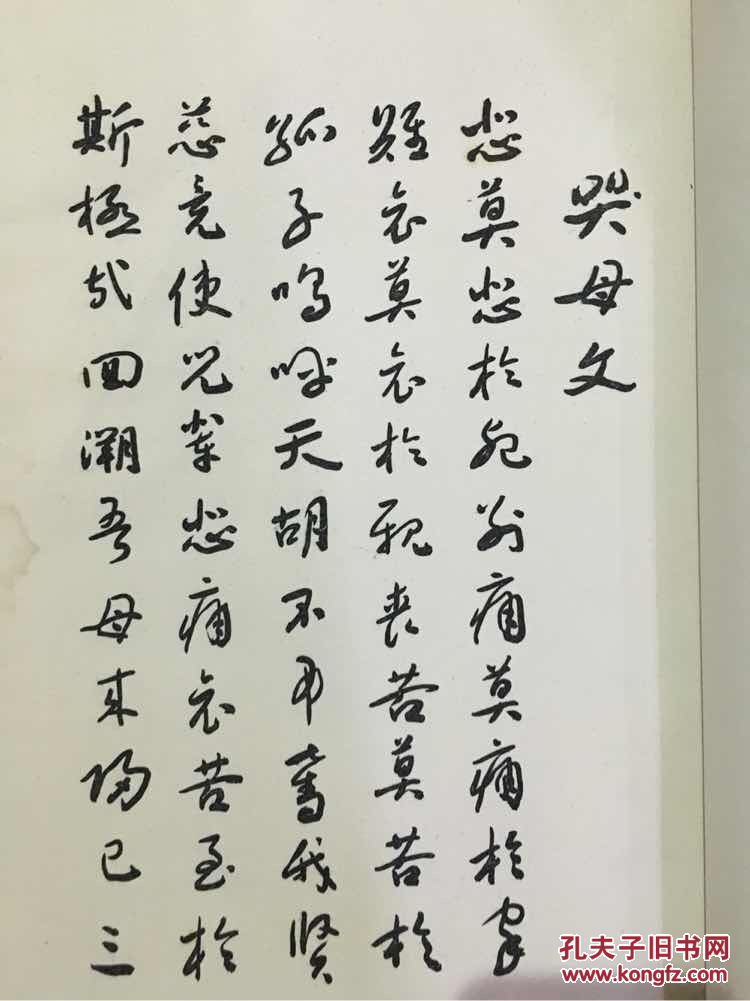 哭母文
悲莫悲於死别痛莫痛於家
難哀莫哀於親喪苦莫苦於
孤子嗚呼天胡不弔奪我賢
慈竟使兒輩悲痛哀苦至於
斯極哉回溯吾母来歸已三
孔夫子旧书网
kongfz.com